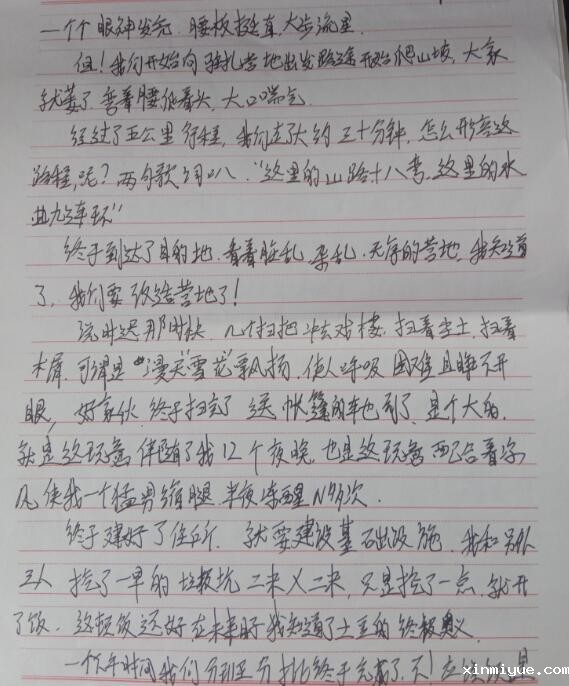 一个个眼神发光.腰板挺直,大步流星.
但!我们开始向驻扎营地出发路途开始爬山坡,大家
就萎了.弯着腰低着头,大口喘气.
经过了五公里行程,我们走了大约三十分钟,怎么形容这
路程呢?两句歌词吧.“这里的山路十八弯.这里的水
路九连环”
终于到达了目的地.看着脏乱.杂乱.无序的营地,我知道
了.我们要改造营地了!
说时迟那时快.几个扫把冲去戏楼.扫着尘土.扫着
木屑.可谓是“漫天”雪花飘扬.使人呼吸困难且睁不开
眼,好家伙.终于扫完了送帐篷的车也到了.是个大的.
就是这玩意伴随了我12个夜晚.也是这玩意配合着寒
风使我一个猛男缩腿.半夜冻醒N多次.
终于建好了住所.就要建设基础设施.我和另外
三人挖了一早的垃圾坑二米×二米,只是挖了一点.就开
了饭.这顿饭还好在未来时我知道了土豆的终极奥义.
一个下午时间我们分班分排终于完成了.
xinmiyue.com